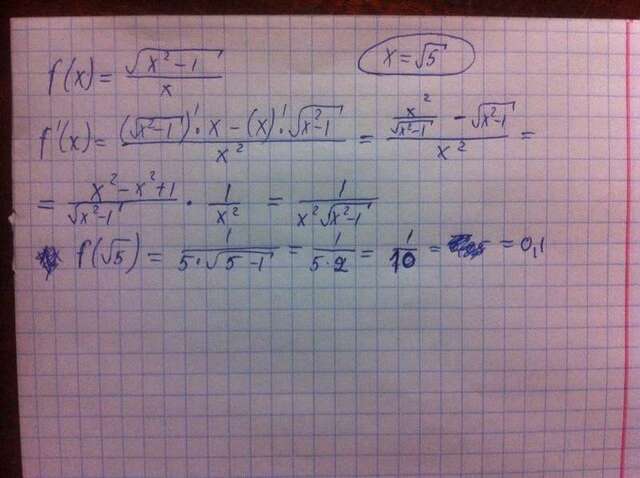 f(x) = √(x²-1) / x
x = √5
f'(x) = ((√(x²-1))' · x - (x)' · √(x²-1)) / x² = (x²/√(x²-1) - √(x²-1)) / x² =
= (x² - x² + 1)/√(x²-1) · 1/x² = 1/(x²√(x²-1))
f(√5) = 1/(5·√(5-1)) = 1/(5·2) = 1/10 = = 0,1